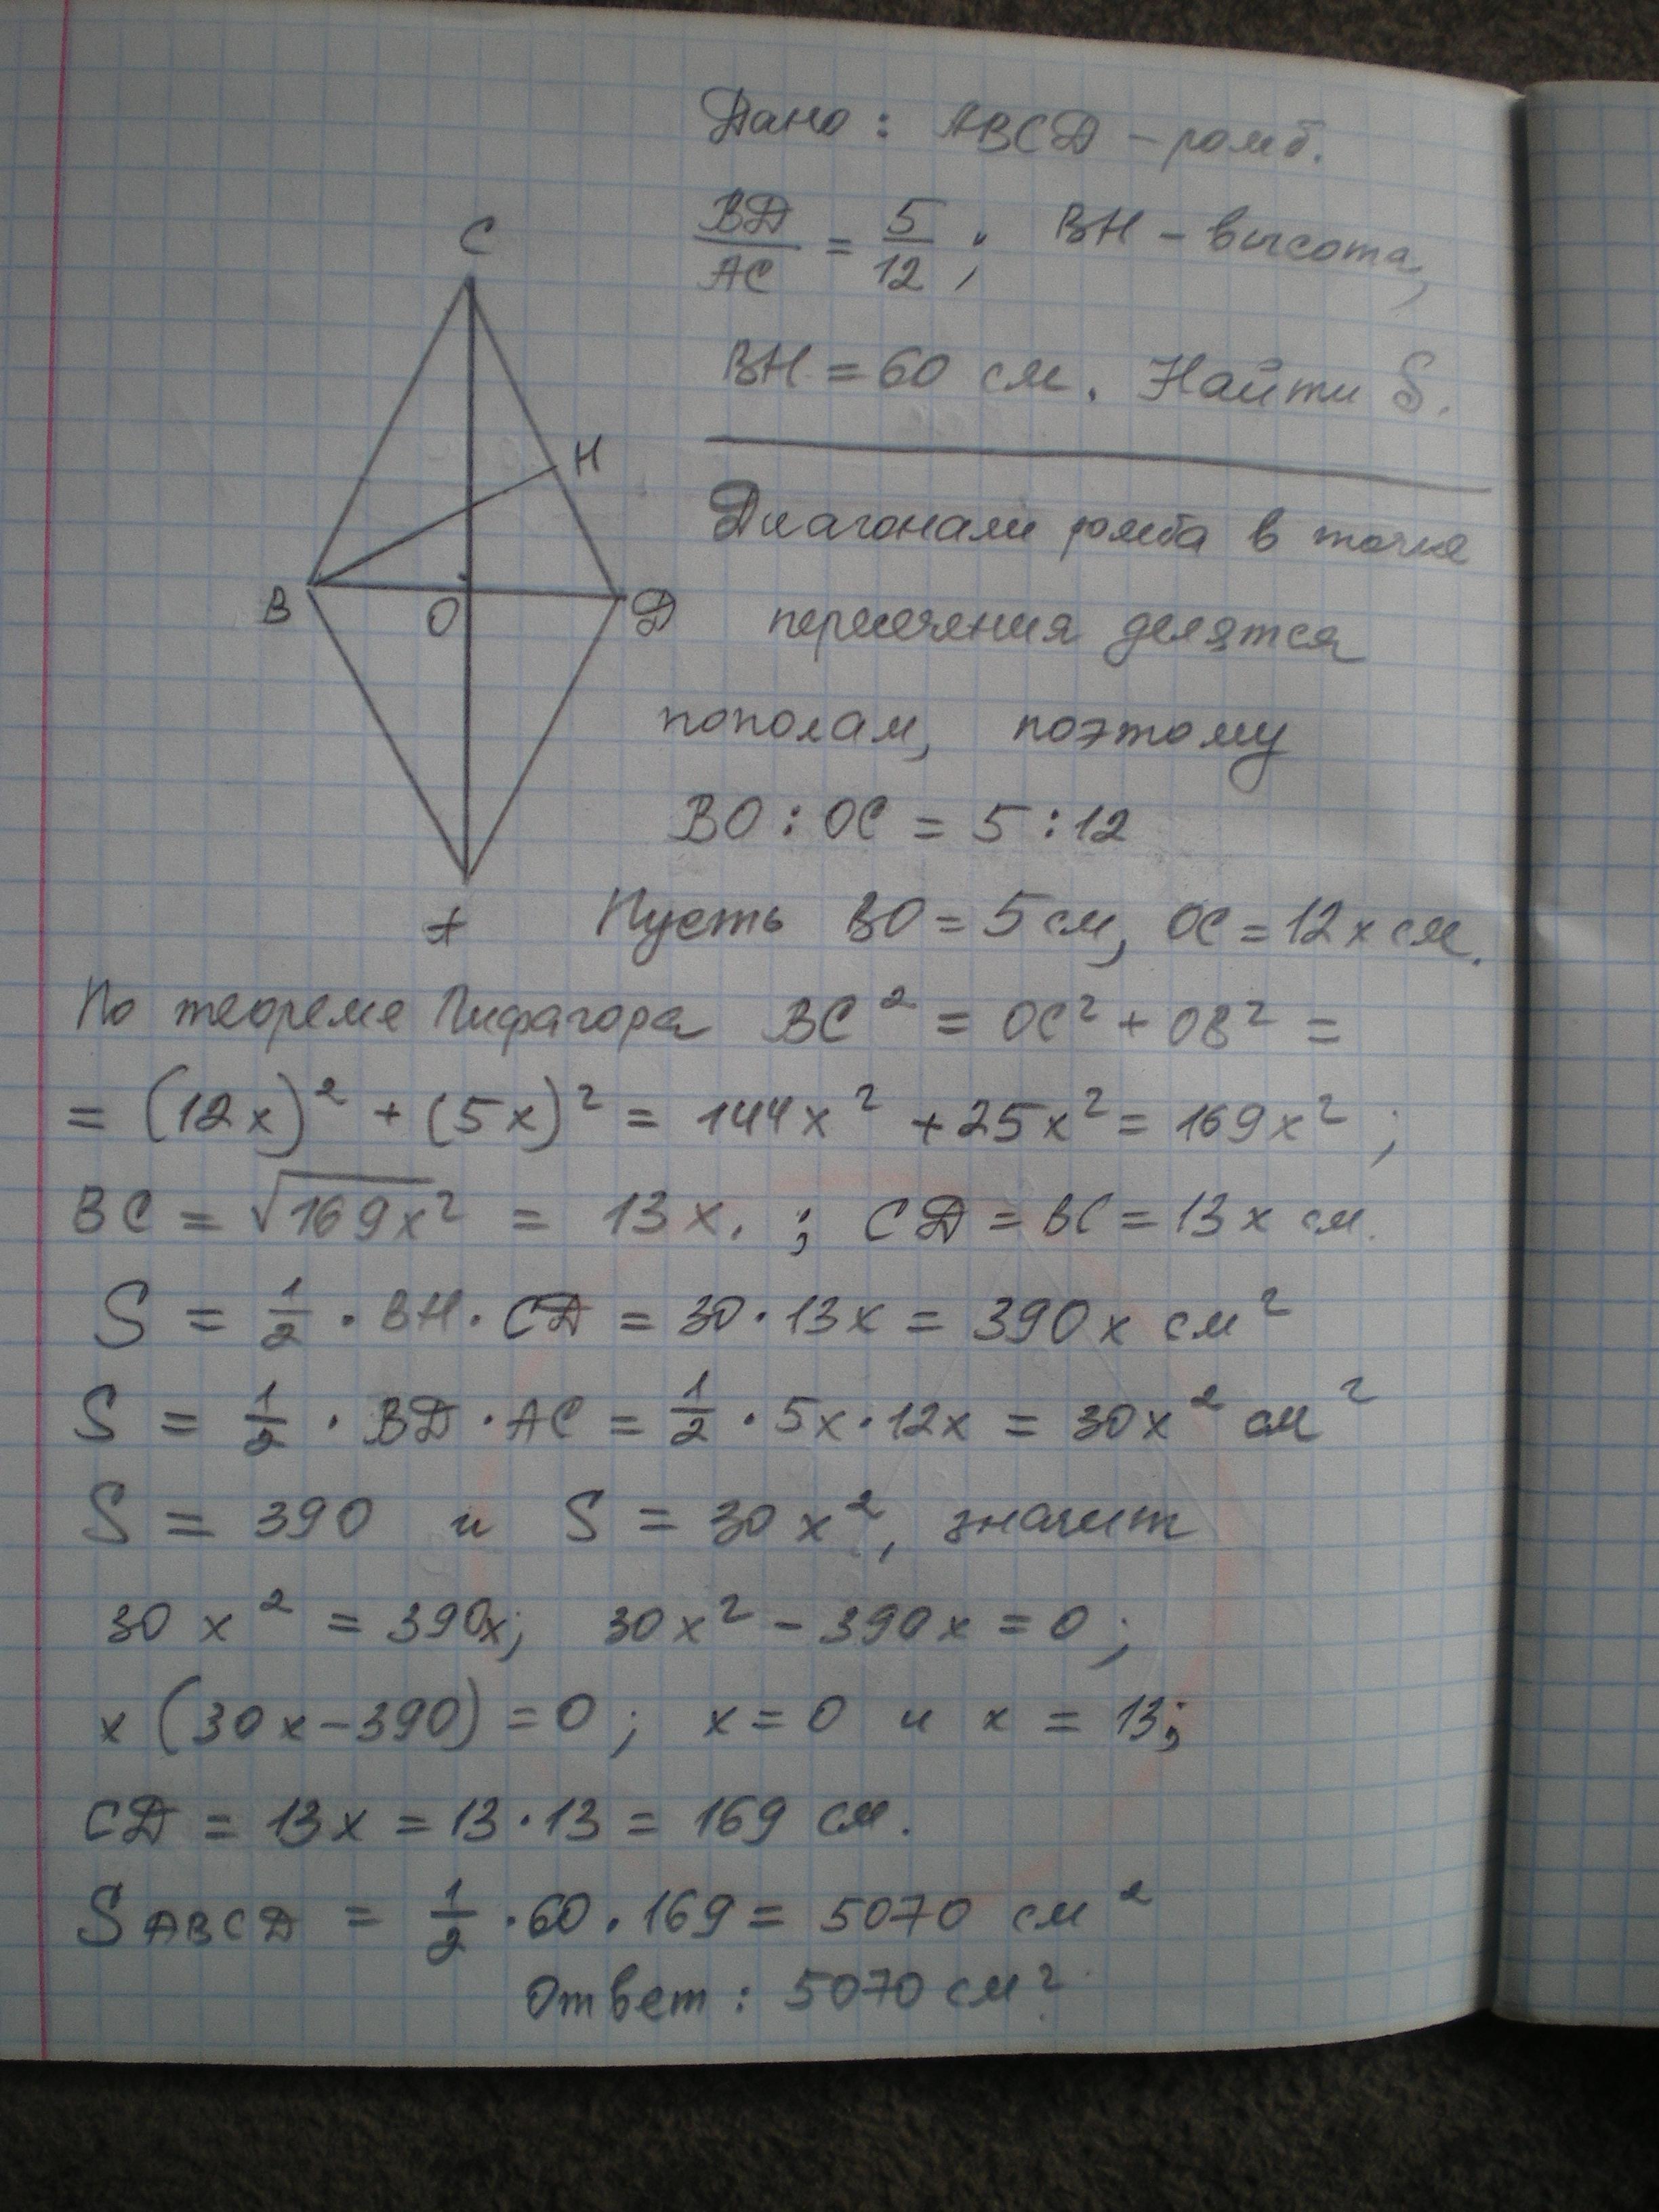 Дано: ABCD – ромб.
BD/AC = 5/12; BH – высота,
BH = 60 см. Найти S.
C
H
B
O
D
A
Диагонали ромба в точке
пересечения делятся
пополам, поэтому
BO : OC = 5 : 12
Пусть BO = 5 см, OC = 12x см.
По теореме Пифагора BC² = OC² + OB² =
= (12x)² + (5x)² = 144x² + 25x² = 169x²;
BC = √169x² = 13x. ; CD = BC = 13x см.
S = 1/2 · BH · CD = 30 · 13x = 390x см²
S = 1/2 · BD · AC = 1/2 · 5x · 12x = 30x² см²
S = 390 и S = 30x², значит
30x² = 390x; 30x² – 390x = 0;
x (30x – 390) = 0; x = 0 и x = 13;
CD = 13x = 13 · 13 = 169 см.
S ABCD = 1/2 · 60 · 169 = 5070 см²
Ответ: 5070 см².